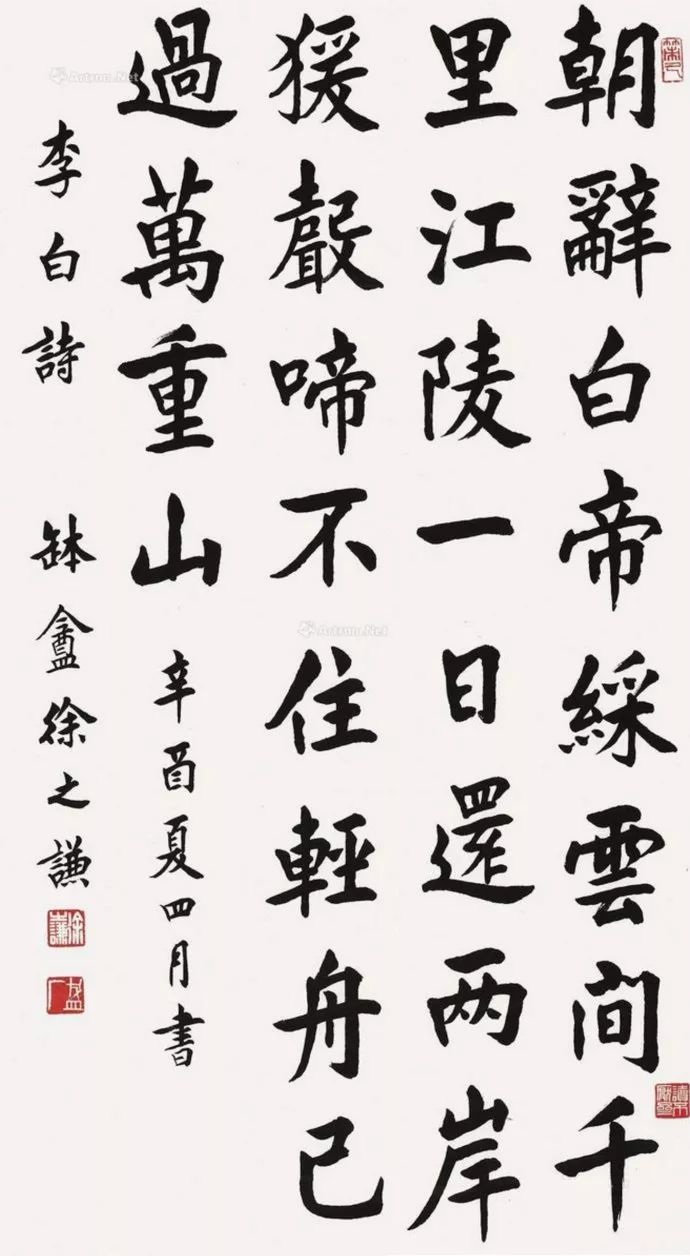 朝辭白帝綵雲間千
里江陵一日還两岸
猨聲啼不住輕舟已
過萬重山
辛酉夏四月書
李白詩 缽盦徐之謙
Artron.Net
Artron.Net